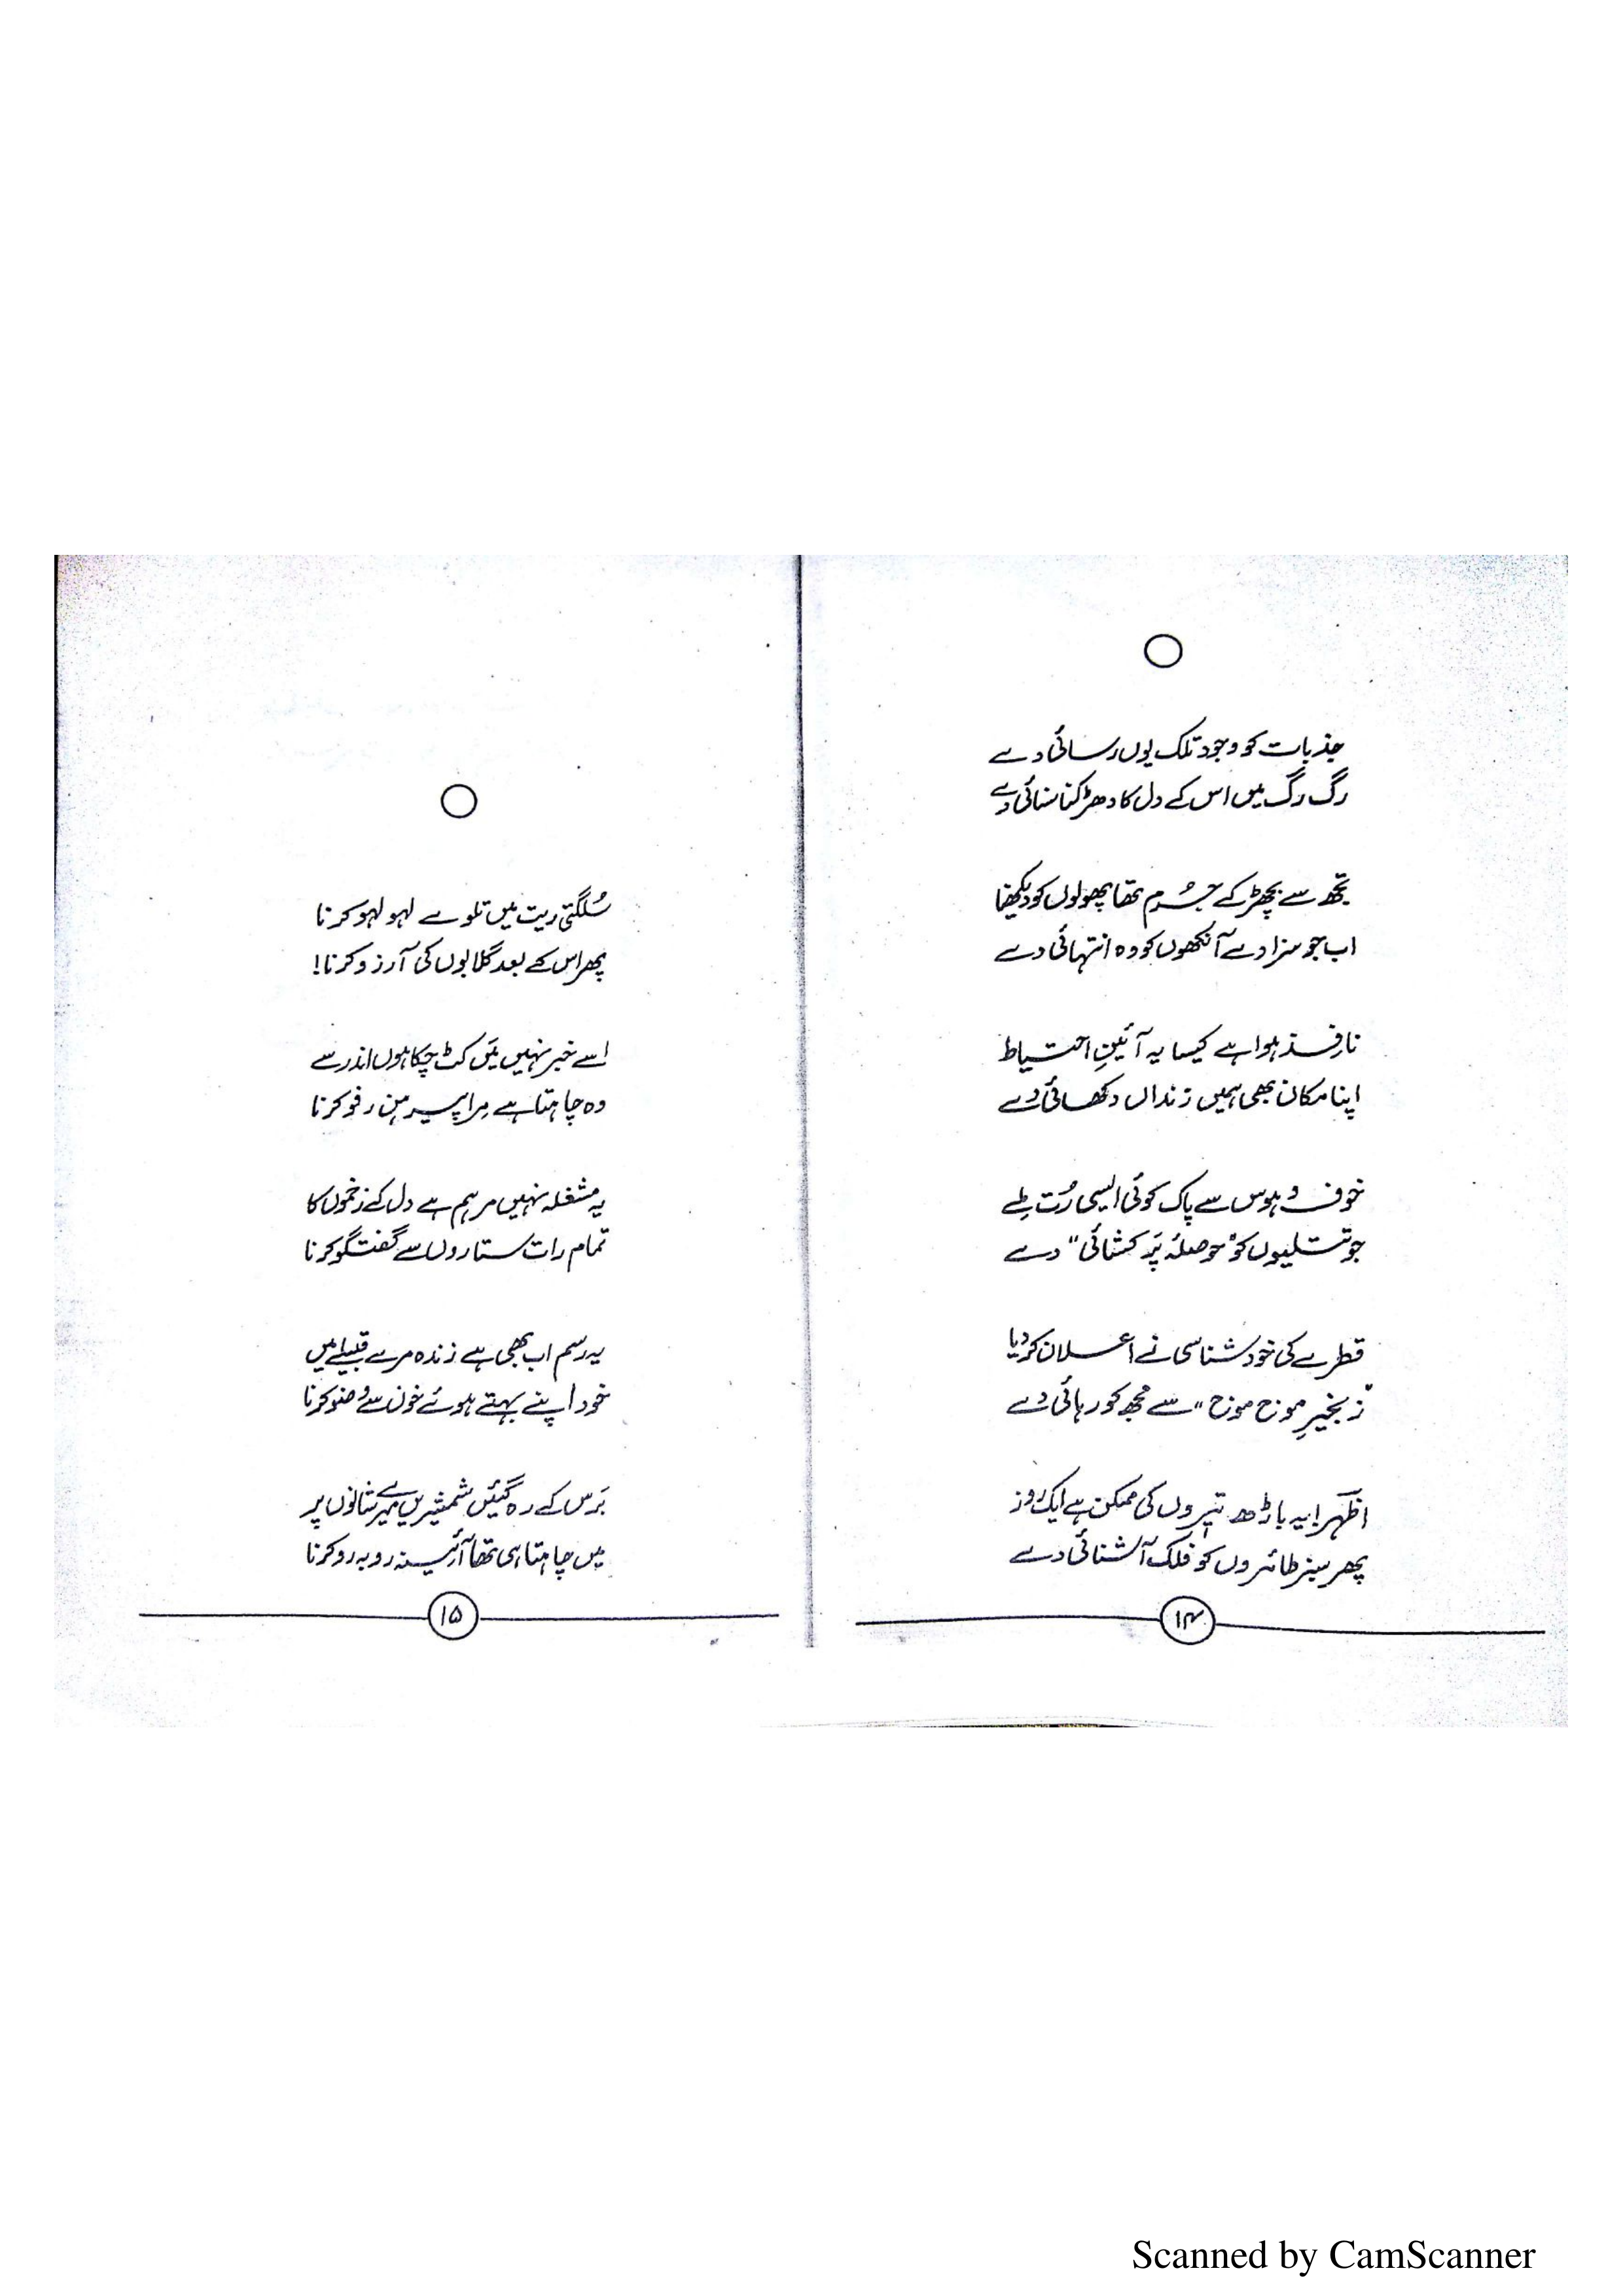 جذبات کو وجود تلک یوں رسائی دے
رگ رگ میں اس کے دل کا دھڑکنا سنائی دے
تجھ سے بچھڑ کے جُرم تھا پھولوں کو دیکھنا
اب جو سزا دے آنکھوں کو وہ انتہائی دے
نافِذ ہوا ہے کیسا یہ آئینِ احتیاط
اپنا مکان بھی ہمیں زنداں دکھائی دے
خوف و ہوس سے پاک کوئی ایسی رُت مِلے
جو تتلیوں کو "حوصلۂ پَر کشائی" دے
قطرے کی خود شناسی نے اعلان کر دیا
"زنجیرِ موج موج" سے مجھ کو رہائی دے
اظہر! یہ باڑھ تیروں کی ممکن ہے ایک روز
پھر سبز طائروں کو فلک آشنائی دے
۱۴
سُلگتی ریت میں تلوے لہو لہو کرنا
پھر اس کے بعد گلابوں کی آرزو کرنا!
اسے خبر نہیں مَیں کٹ چکا ہوں اندر سے
وہ چاہتا ہے مِرا پیرہن رفو کرنا
یہ مشغلہ نہیں مرہم ہے دل کے زخموں کا
تمام رات ستاروں سے گفتگو کرنا
یہ رسم اب بھی ہے زندہ مرے قبیلے میں
خود اپنے بہتے ہوئے خون سے وُضو کرنا
بَرس کے رہ گئیں شمشیریں میرے شانوں پر
میں چاہتا ہی تھا آئینہ روبہ رو کرنا
۱۵
Scanned by CamScanner